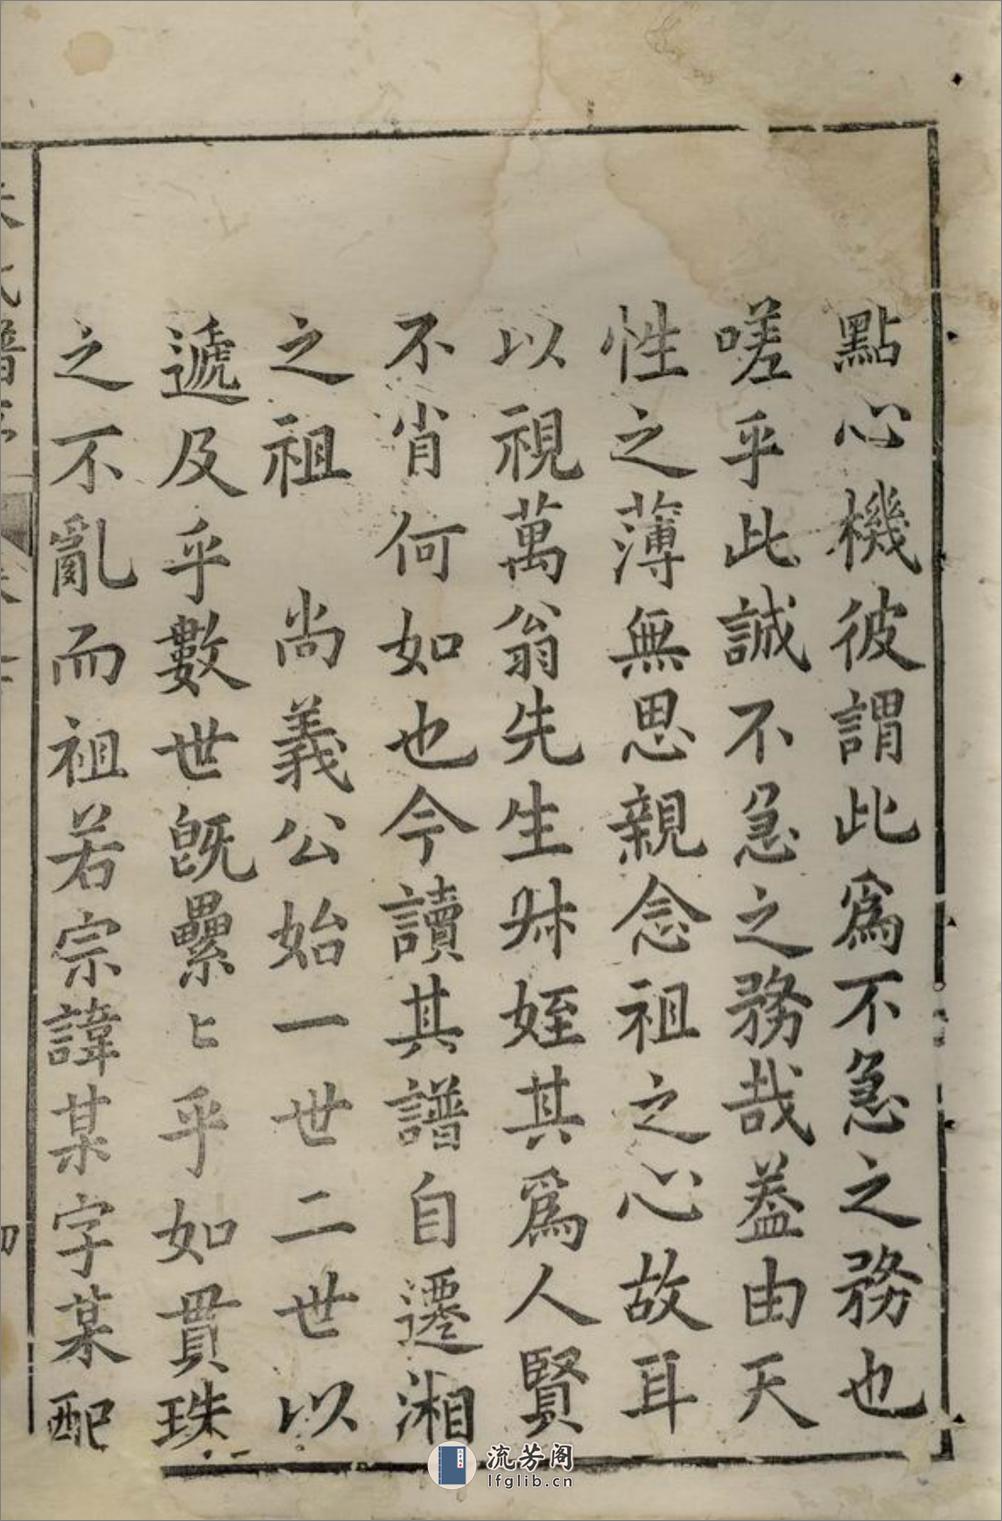 點心機彼謂此爲不急之務也
嗟乎此誠不急之務哉葢由天
性之薄無思親念祖之心故耳
以視萬翁先生叔姪其爲人賢
不肖何如也今讀其譜自遷湘
之祖　尚義公始一世二世以
遞及乎數世旣纍〻乎如貫珠
之不亂而祖若宗諱某字某配
流芳阁
lfglib.cn